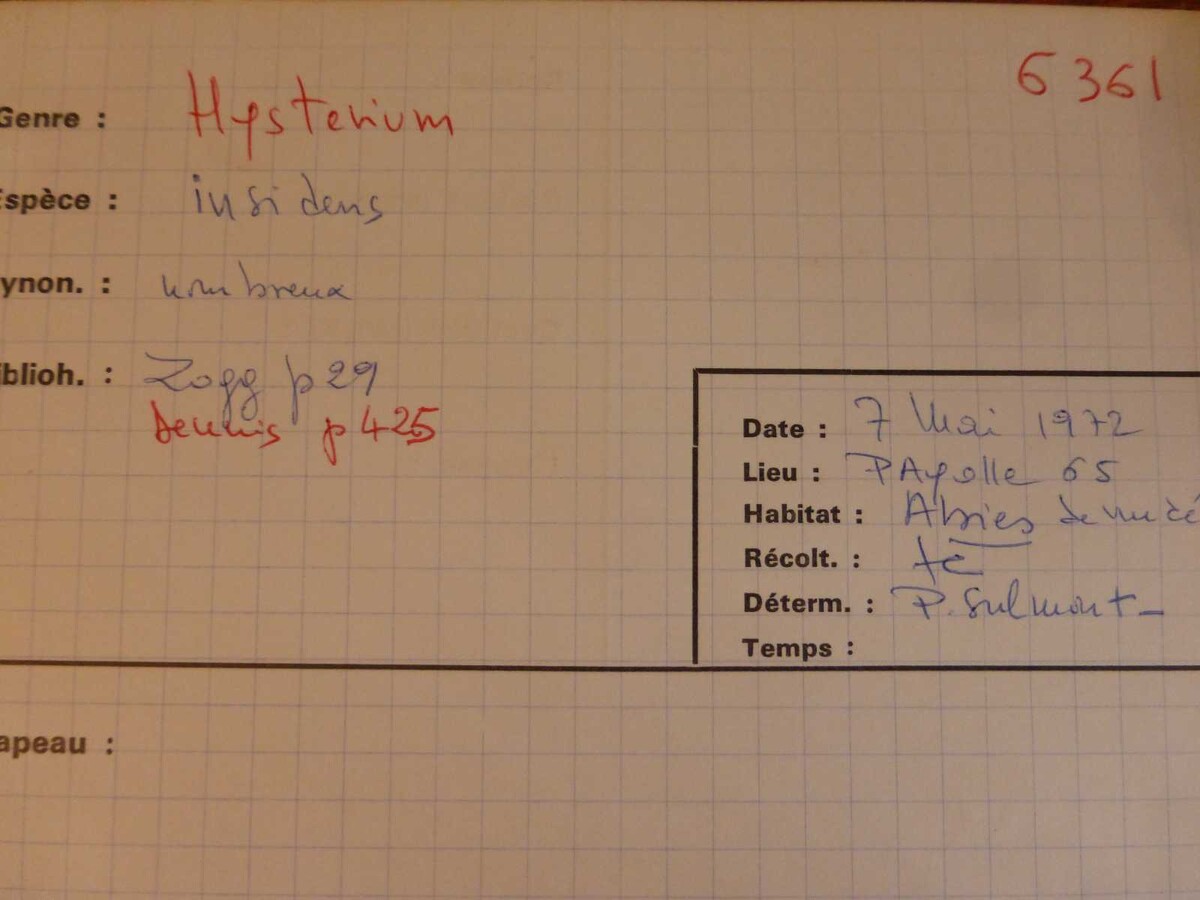 6361
Genre : Hysterium
Espèce : insidens
ynon. : nombreux
iblioh. : Zogg p 29
Dennis p 425
Date : 7 Mai 1972
Lieu : PAyolle 65
Habitat : Abies denudé
Récolt. :
Déterm. : P. Sulmont
Temps :
apeau :